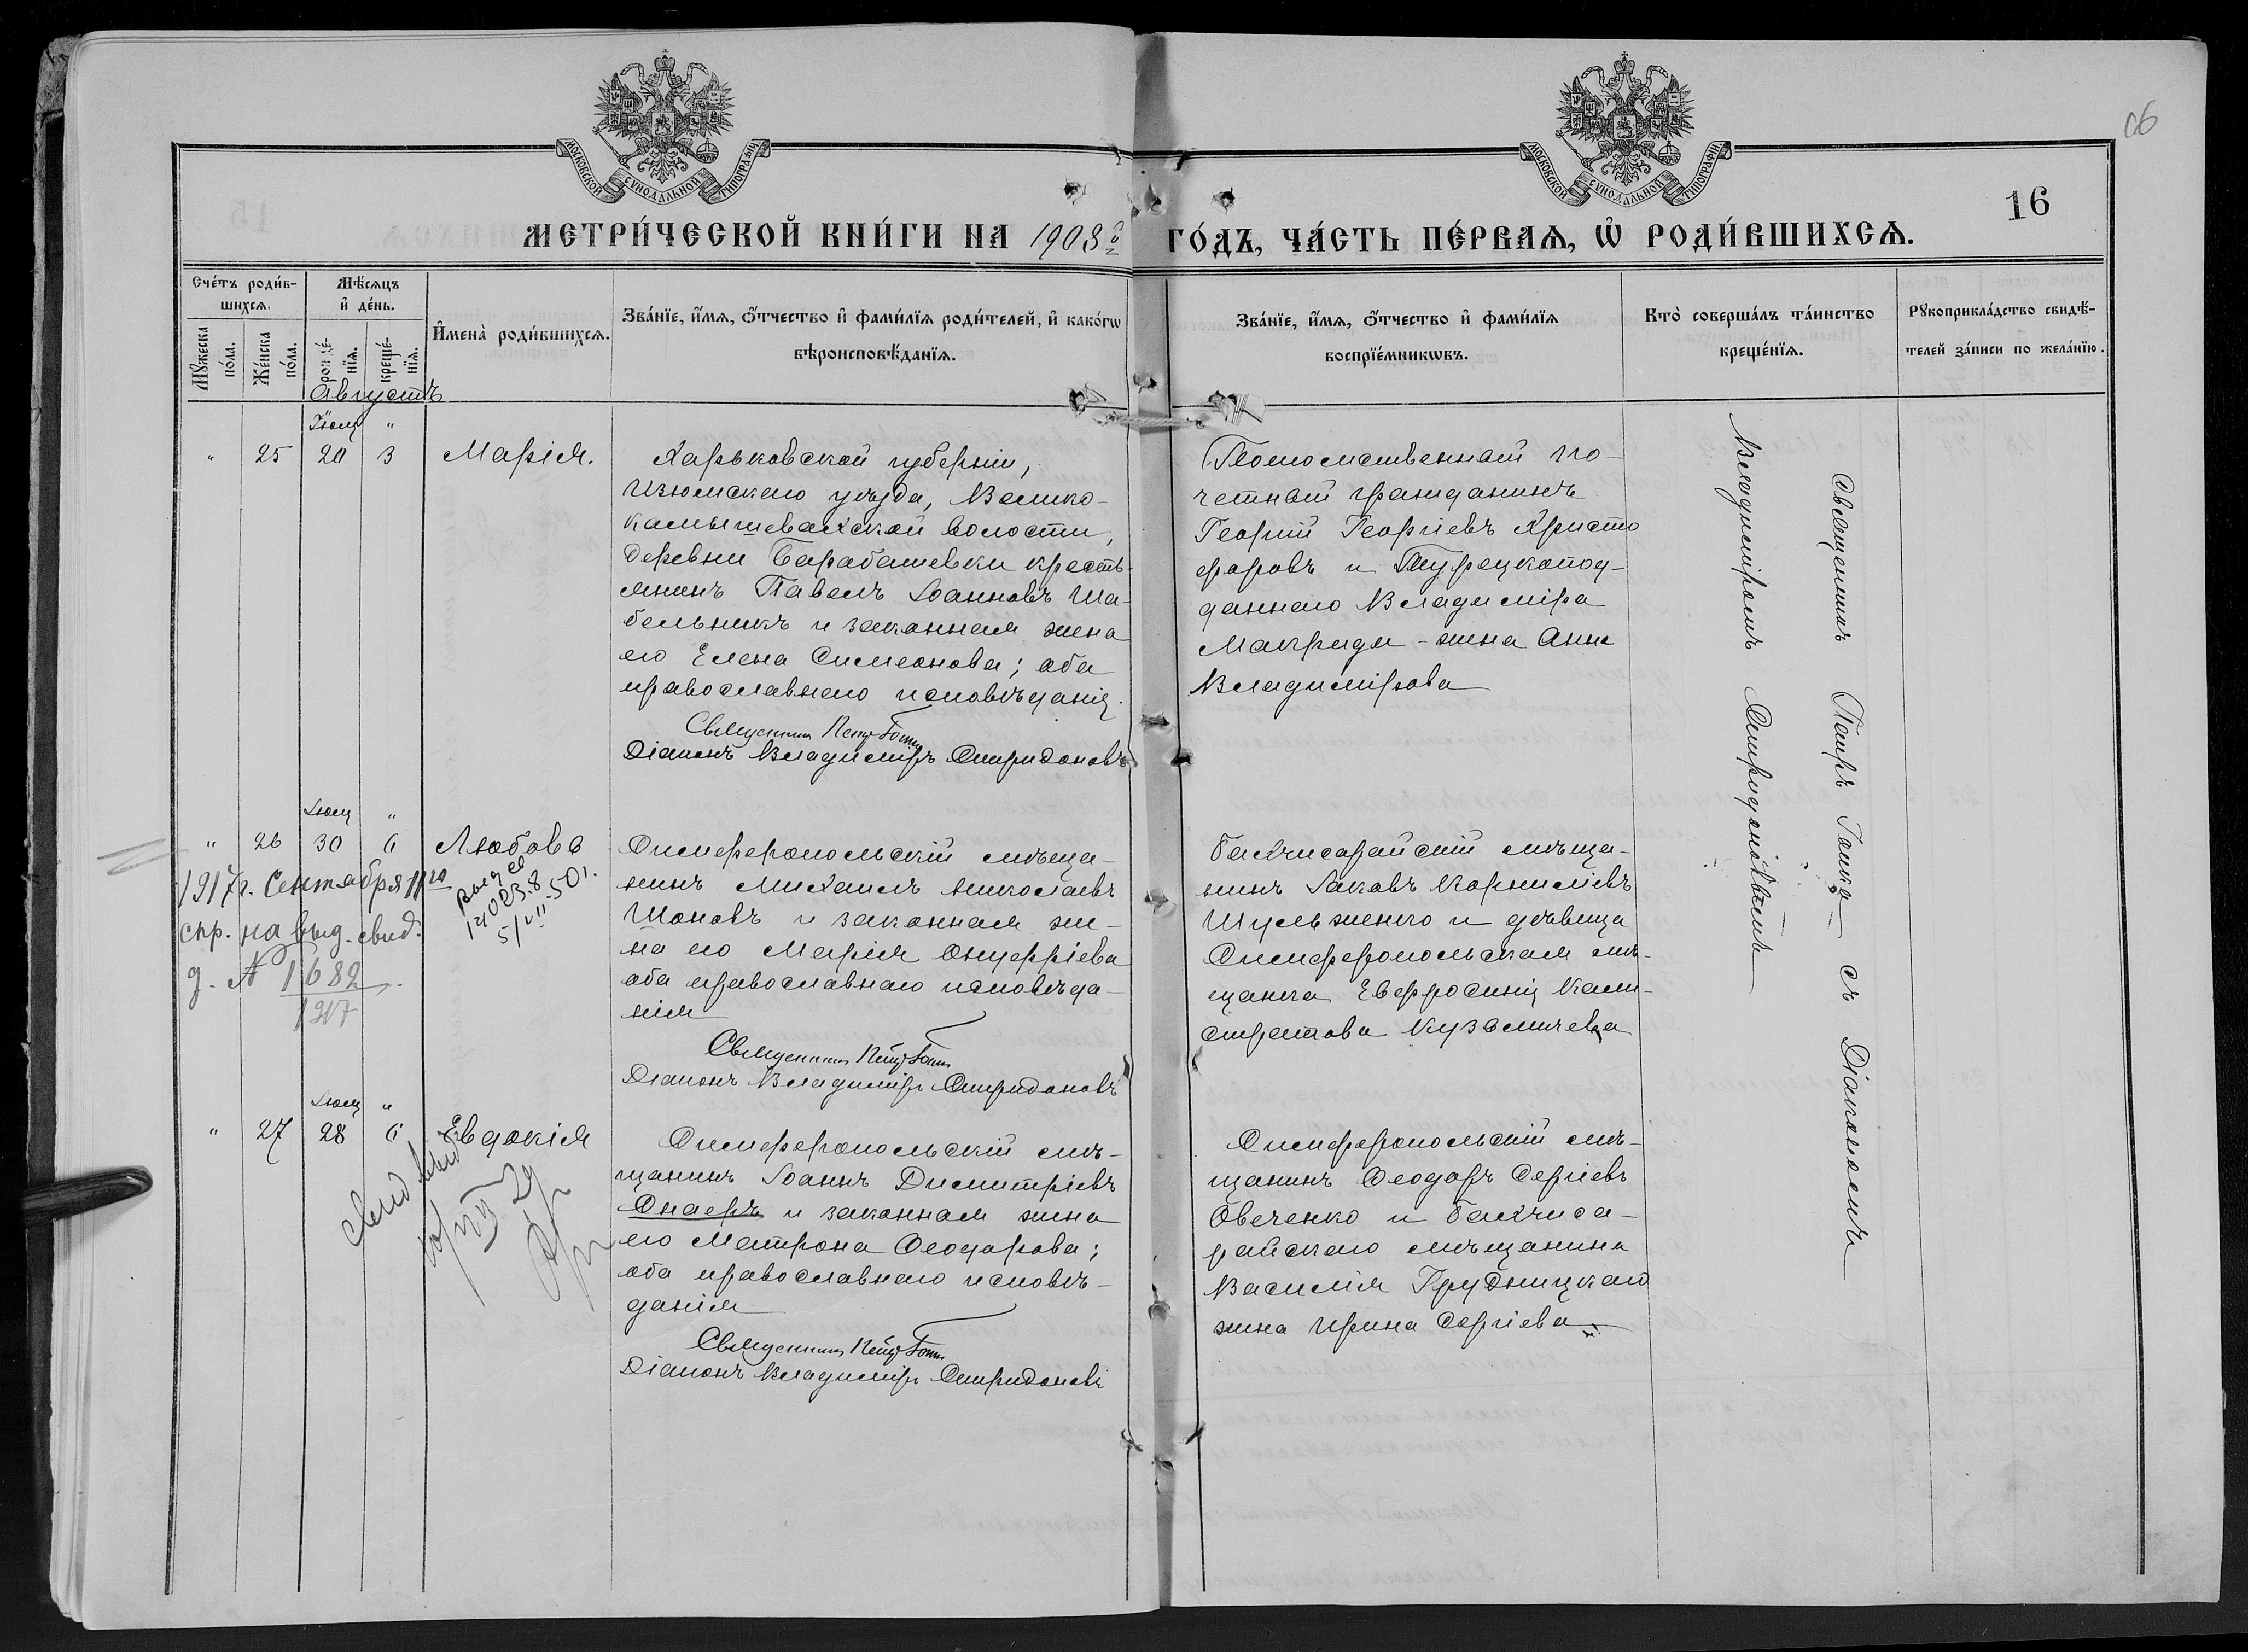 МОСКОВСКОЙ СУНОДАЛЬНОЙ ТИПОГРАФІИ
МОСКОВСКОЙ СУНОДАЛЬНОЙ ТИПОГРАФІИ
16
МЕТРИ́ЧЕСКОЙ КНИ́ГИ НА 1903й ГО́ДЪ, ЧА́СТЬ ПЕ́РВАѦ, Ѡ҆ РОДИ́ВШИХСѦ.
Сче́тъ роди́в-
шихсѧ.
Мꙋ́жеска по́ла.
Же́нска по́ла.
Мѣ́сѧцъ
и҆ де́нь.
рожде́-
нїѧ.
креще́-
нїѧ.
И҆мена̀ роди́вшихсѧ.
Зва́нїе, и҆́мѧ, ѻ҆́тчество и҆ фами́лїѧ роди́телей, и҆ како́гѡ
вѣроисповѣ́данїѧ.
Зва́нїе, и҆́мѧ, ѻ҆́тчество и҆ фами́лїѧ
воспрїе́мникѡвъ.
Кто̀ соверша́лъ та́инство
креще́нїѧ.
Рꙋкоприкла́дство свидѣ́-
телей за́писи по жела́нїю.
Августъ
Іюля "
" 25 20 3 Марія.
Харьковской губерніи,
Изюмскаго уѣзда, Велико-
камышевахской волости,
деревни Барабашевки кресть-
янинъ Павелъ Іоанновъ Ша-
бельникъ и законная жена
его Елена Симеонова; оба
православнаго исповѣданія.
Священникъ Петръ
Діаконъ Владиміръ Спиридоновъ
Потомственный по-
четный гражданинъ
Георгій Георгіевъ Христо
форовъ и Турецкопод-
даннаго Владиміра
Макриди - жена Анна
Владимірова
Священникъ Петръ съ Діакономъ
Владиміромъ Спиридоновымъ
Іюля "
" 26 30 6 Любовь
1917г. Сентября 11го
спр. на выд. свид.
№ 1682
1917
Симферопольскій мѣща-
нинъ Михаилъ Николаевъ
Шоновъ и законная же-
на его Марія Онуфріева
оба православнаго исповѣда-
нія
Священникъ Петръ
Діаконъ Владиміръ Спиридоновъ
Бахчисарайскій мѣща-
нинъ Іаковъ Корниліевъ
Шульженко и дѣвица
Симферопольская мѣ-
щанка Евфросинія Кали-
стратова Кузьмичева
Іюля "
" 27 28 6 Евдокія
Симферопольскій мѣ-
щанинъ Іоаннъ Димитріевъ
Снаеръ и законная жена
его Матрона Ѳеодорова;
оба православнаго исповѣ-
данія
Священникъ Петръ
Діаконъ Владиміръ Спиридоновъ
Симферопольскій мѣ-
щанинъ Ѳеодоръ Сергіевъ
Овеченко и Бахчиса-
райскаго мѣщанина
Василія Грудницкаго
жена Ирина Сергіева